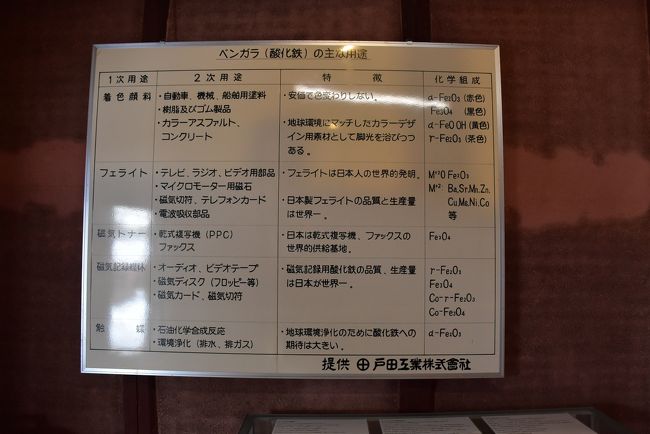 ベンガラ（酸化鉄）の主な用途
１次用途 ２次用途 特徴 化学組成
着色顔料
・自動車、機械、船舶用塗料
・樹脂及びゴム製品
・カラーアスファルト、
コンクリート
・安価で色変わりしない。
・地球環境にマッチしたカラーデザ
イン用素材として脚光を浴びつつ
ある。
α-Fe₂O₃（赤色）
Fe₃O₄（黒色）
α-FeOOH（黄色）
r-Fe₂O₃（茶色）
フェライト
・テレビ、ラジオ、ビデオ用部品
・マイクロモーター用磁石
・磁気切符、テレフォンカード
・電波吸収部品
・フェライトは日本人の世界的発明。
・日本製フェライトの品質と生産量
は世界一。
M⁺²O Fe₂O₃
M⁺²: Ba,Sr,Mn,Zn,
Cu,Mg,Ni,Co
等
磁気トナー
・乾式複写機（PPC）
ファックス
・日本は乾式複写機、ファックスの
世界的供給基地。
Fe₃O₄
磁気記録媒体
・オーディオ、ビデオテープ
・磁気ディスク（フロッピー等）
・磁気カード、磁気切符
・磁気記録用酸化鉄の品質、生産量
は日本が世界一。
r-Fe₂O₃
Fe₃O₄
Co-r-Fe₂O₃
Co-Fe₃O₄
触媒
・石油化学合成反応
・環境浄化（排水、排ガス）
・地球環境浄化のために酸化鉄への
期待は大きい。
α-Fe₂O₃
提供 戸田工業株式會社